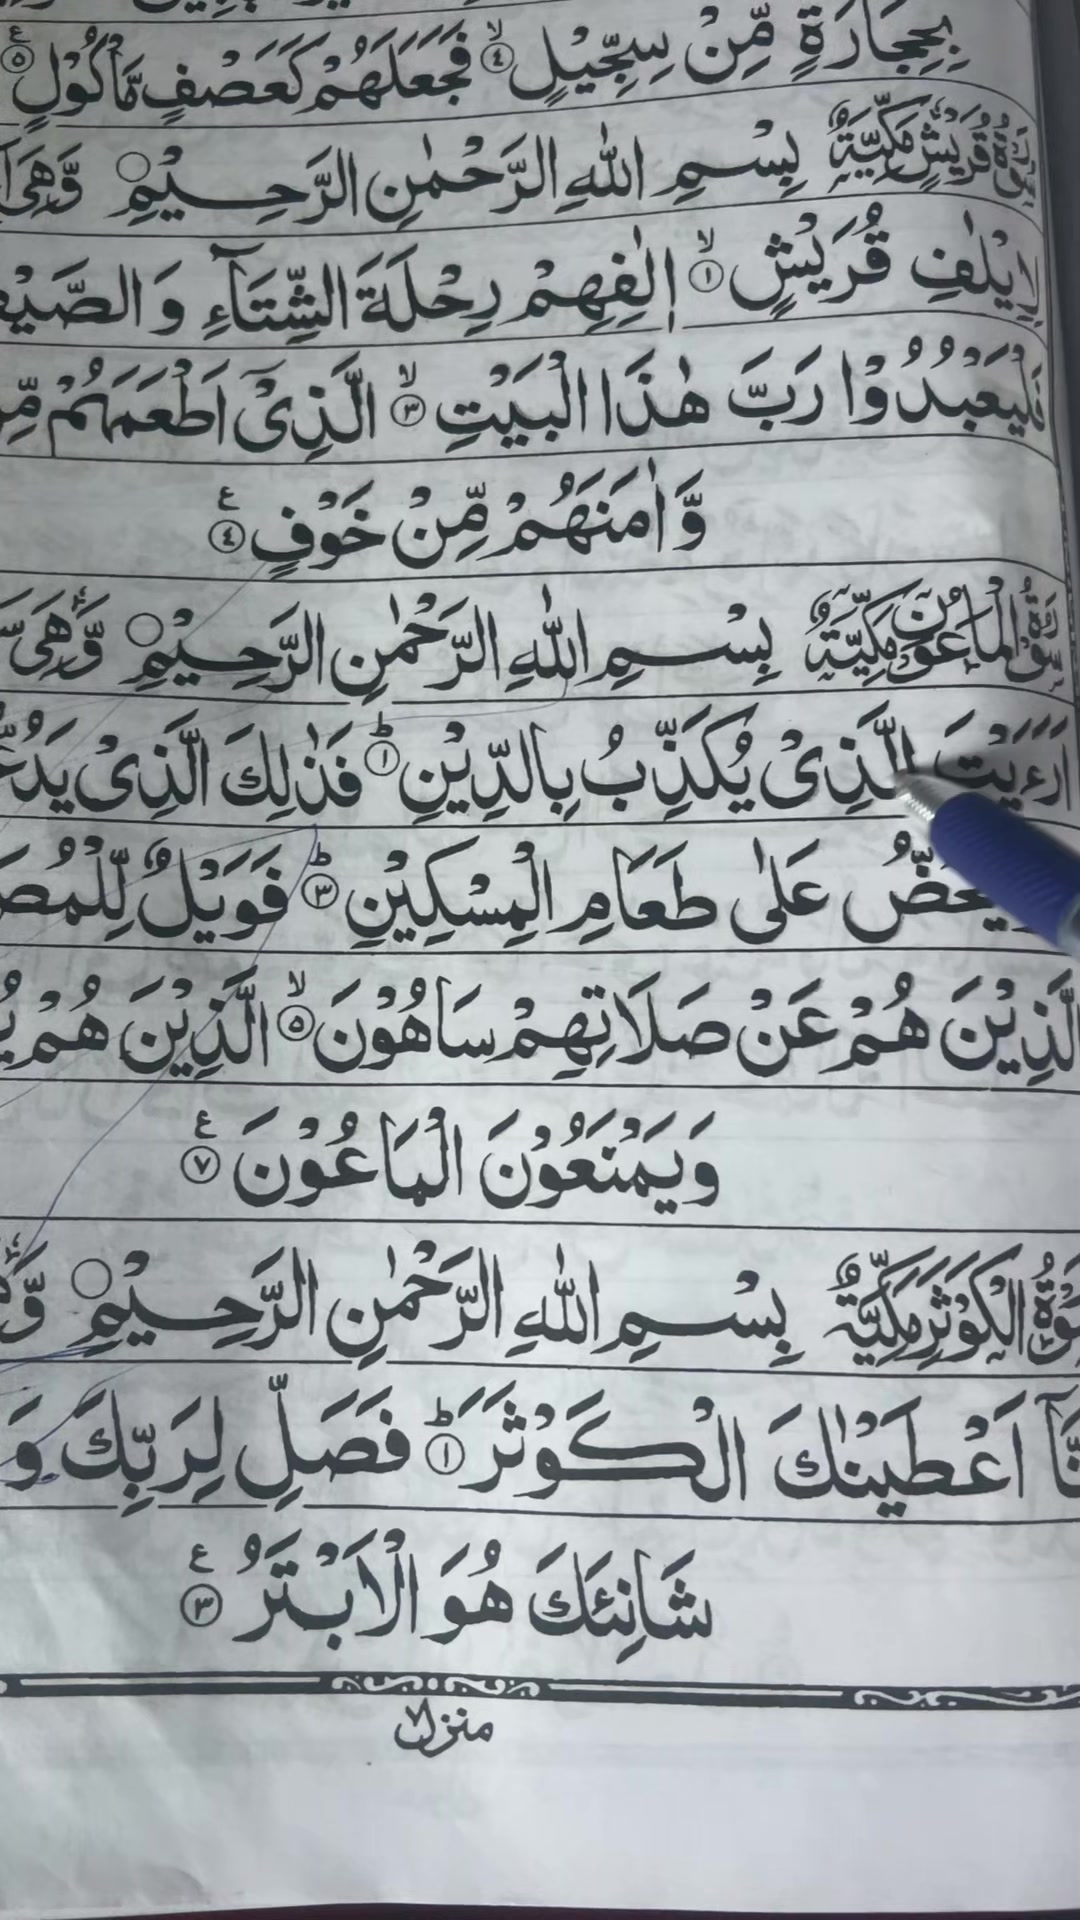 بِحِجَارَةٍ مِّنْ سِجِّيْلٍ ۙ﴿٤﴾ فَجَعَلَهُمْ كَعَصْفٍ مَّاْكُوْلٍ ﴿٥﴾ ع
سُوْرَةُ قُرَيْشٍ مَّكِّيَّةٌ بِسْمِ اللّٰهِ الرَّحْمٰنِ الرَّحِيْمِ ○ وَّهِىَ
لِاِيْلٰفِ قُرَيْشٍ ۙ﴿١﴾ اٖلٰفِهِمْ رِحْلَةَ الشِّتَآءِ وَ الصَّيْفِ
فَلْيَعْبُدُوْا رَبَّ هٰذَا الْبَيْتِ ۙ﴿٣﴾ الَّذِىْۤ اَطْعَمَهُمْ مِّنْ
وَّاٰمَنَهُمْ مِّنْ خَوْفٍ ﴿٤﴾ ع
سُوْرَةُ الْمَاعُوْنِ مَكِّيَّةٌ بِسْمِ اللّٰهِ الرَّحْمٰنِ الرَّحِيْمِ ○ وَّهِىَ
اَرَءَيْتَ الَّذِىْ يُكَذِّبُ بِالدِّيْنِ ؕ﴿١﴾ فَذٰلِكَ الَّذِىْ يَدُعُّ
يَحُضُّ عَلٰى طَعَامِ الْمِسْكِيْنِ ؕ﴿٣﴾ فَوَيْلٌ لِّلْمُصَ
الَّذِيْنَ هُمْ عَنْ صَلَاتِهِمْ سَاهُوْنَ ۙ﴿٥﴾ الَّذِيْنَ هُمْ
وَيَمْنَعُوْنَ الْمَاعُوْنَ ﴿٧﴾ ع
سُوْرَةُ الْكَوْثَرِ مَكِّيَّةٌ بِسْمِ اللّٰهِ الرَّحْمٰنِ الرَّحِيْمِ ○
اِنَّآ اَعْطَيْنٰكَ الْكَوْثَرَ ؕ﴿١﴾ فَصَلِّ لِرَبِّكَ وَ
شَانِئَكَ هُوَ الْاَبْتَرُ ﴿٣﴾ ع
منزل ٧